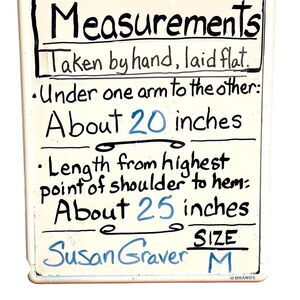 Measurements
Taken by hand, laid flat.
• Under one arm to the other:
About 20 inches
• Length from highest
point of shoulder to hem:
About 25 inches
Susan Graver SIZE
M
U BRANDS